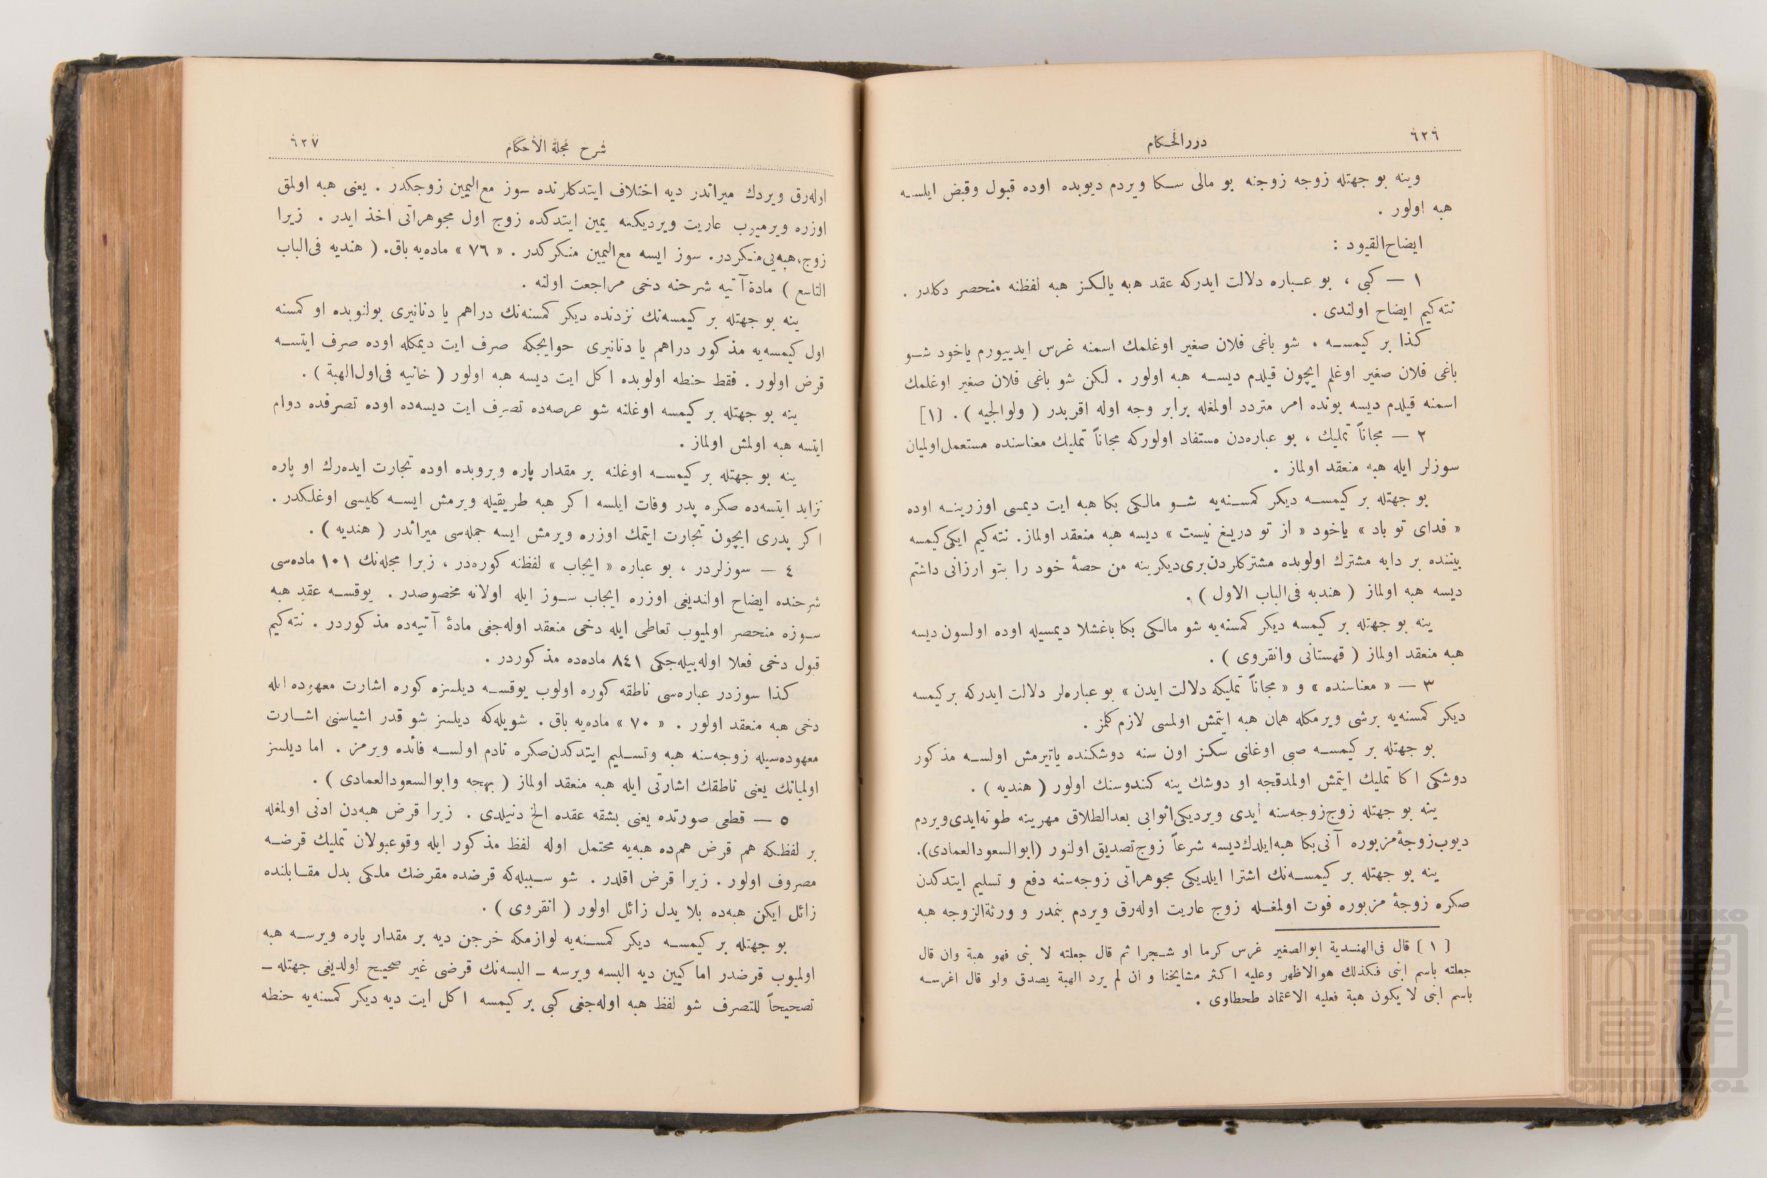 ٦٢٦
دررالحكام
وينه بو جهتله زوجه زوجنه بو مالى سكا ويردم ديوبده اوده قبول وقبض ايلسه
هبه اولور .
ايضاح القيود :
١ — كبى ، بو عباره دلالت ايدركه عقد هبه يالكز هبه لفظنه منحصر دكلدر .
نته كيم ايضاح اولندى .
كذا بر كيمسه ، شو باغى فلان صغير اوغلمك اسمنه غرس ايدييورم ياخود شو
باغى فلان صغير اوغلم ايچون قيلدم ديسه هبه اولور . لكن شو باغى فلان صغير اوغلمك
اسمنه قيلدم ديسه بونده امر متردد اولمغله برابر وجه اوله اقربدر ( ولوالجيه ) . [١]
٢ — مجاناً تمليك ، بو عباره‌دن مستفاد اولوركه مجاناً تمليك معناسنده مستعمل اولميان
سوزلر ايله هبه منعقد اولماز .
بو جهتله بر كيمسه ديكر كمسنه‌يه شو مالكى بكا هبه ايت ديمسى اوزرينه اوده
« فداى تو باد » ياخود « از تو دريغ نيست » ديسه هبه منعقد اولماز. نته كيم ايكى كيمسه
بيننده بر دابه مشترك اولوبده مشتركلردن برى ديكرينه من حصۀ خود را بتو ارزانى داشتم
ديسه هبه اولماز ( هنديه فى الباب الاول ) .
ينه بو جهتله بر كيمسه ديكر كمسنه‌يه شو مالكى بكا باغشلا ديمسيله اوده اولسون ديسه
هبه منعقد اولماز ( قهستانى وانقروى ) .
٣ — « معناسنده » و « مجاناً تمليكه دلالت ايدن » بو عباره‌لر دلالت ايدركه بر كيمسه
ديكر كمسنه‌يه برشى ويرمكله همان هبه ايتمش اولمسى لازم كلمز .
بو جهتله بر كيمسه صبى اوغلنى سكز اون سنه دوشكنده ياتيرمش اولسه مذكور
دوشكى اكا تمليك ايتمش اولمدقجه او دوشك ينه كندوسنك اولور ( هنديه ) .
ينه بو جهتله زوج زوجه‌سنه ايدى ويرديكى اثوابى بعدالطلاق مهرينه طوته‌ايدى ويردم
ديوب زوجۀ مزبوره آنى بكا هبه ايلدك ديسه شرعاً زوج تصديق اولنور (ابوالسعودالعمادى).
ينه بو جهتله بر كيمسه‌نك اشترا ايلديكى مجوهراتى زوجه‌سنه دفع و تسليم ايتدكدن
صكره زوجۀ مزبوره فوت اولمغله زوج عاريت اوله‌رق ويردم بنمدر و ورثةالزوجه هبه
[ ١ ] قال فى الهندية ابوالصغير غرس كرما او شجرا ثم قال جعلته لا بنى فهو هبة وان قال
جعلته باسم ابنى فكذلك هوالاظهر وعليه اكثر مشايخنا و ان لم يرد الهبة يصدق ولو قال اغرسه
باسم ابنى لا يكون هبة فعليه الاعتماد طحطاوى .
شرح مجلة الأحكام
٦٢٧
اوله‌رق ويردك ميراثدر ديه اختلاف ايتدكلرنده سوز مع اليمين زوجكدر . يعنى هبه اولمق
اوزره ويرميوب عاريت ويرديكنه يمين ايتدكده زوج اول مجوهراتى اخذ ايدر . زيرا
زوج، هبه‌يى منكردر. سوز ايسه مع اليمين منكركدر . « ٧٦ » ماده‌يه باق. ( هنديه فى الباب
التاسع ) مادۀ آتيه شرحنه دخى مراجعت اولنه .
ينه بو جهتله بر كيمسه‌نك نزدنده ديكر كمسنه‌نك دراهم يا دنانيرى بولنوبده او كمسنه
اول كيمسه‌يه مذكور دراهم يا دنانيرى حوايجكه صرف ايت ديمكله اوده صرف ايتسه
قرض اولور . فقط حنطه اولوبده اكل ايت ديسه هبه اولور ( خانيه فى اول الهبة ) .
ينه بو جهتله بر كيمسه اوغلنه شو عرصه‌ده تصرف ايت ديسه‌ده اوده تصرفده دوام
ايتسه هبه اولمش اولماز .
ينه بو جهتله بر كيمسه اوغلنه بر مقدار پاره ويروبده اوده تجارت ايده‌رك او پاره
تزايد ايتسه‌ده صكره پدر وفات ايلسه اكر هبه طريقيله ويرمش ايسه كليسى اوغلكدر .
اكر پدرى ايچون تجارت ايتمك اوزره ويرمش ايسه جمله‌سى ميراثدر ( هنديه ) .
٤ — سوزلردر ، بو عباره « ايجاب » لفظنه كوره‌در ، زيرا مجله‌نك ١٠١ ماده‌سى
شرحنده ايضاح اولنديغى اوزره ايجاب سوز ايله اولانه مخصوصدر . يوقسه عقد هبه
سوزه منحصر اولميوب تعاطى ايله دخى منعقد اوله‌جغى مادۀ آتيه‌ده مذكوردر . نته كيم
قبول دخى فعلا اوله‌بيله‌جكى ٨٤١ ماده‌ده مذكوردر .
كذا سوزدر عباره‌سى ناطقه كوره اولوب يوقسه ديلسزه كوره اشارت معهوده ايله
دخى هبه منعقد اولور . « ٧٠ » ماده‌يه باق . شويله‌كه ديلسز شو قدر اشياسنى اشارت
معهوده‌سيله زوجه‌سنه هبه وتسليم ايتدكدن صكره نادم اولسه فائده ويرمز . اما ديلسز
اولميانك يعنى ناطقك اشارتى ايله هبه منعقد اولماز ( بهجه وابوالسعودالعمادى ) .
٥ — قطعى صورتده يعنى بشقه عقده الخ دنيلدى . زيرا قرض هبه‌دن ادنى اولمغله
بر لفظكه هم قرض هم‌ده هبه‌يه محتمل اوله لفظ مذكور ايله وقوعبولان تمليك قرضه
مصروف اولور . زيرا قرض اقلدر . شو سببله‌كه قرضده مقرضك ملكى بدل مقابلنده
زائل ايكن هبه‌ده بلا بدل زائل اولور ( انقروى ) .
بو جهتله بر كيمسه ديكر كمسنه‌يه لوازمكه خرجن ديه بر مقدار پاره ويرسه هبه
اولميوب قرضدر اما كيين ديه البسه ويرسه ــ البسه‌نك قرضى غير صحيح اولديغى جهتله ــ
تصحيحاً للتصرف شو لفظ هبه اوله‌جغى كبى بر كيمسه اكل ايت ديه ديكر كمسنه‌يه حنطه
TOYO BUNKO